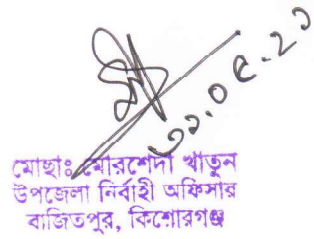 ৩১.০৫.২১
মোছাঃ মোরশেদা খাতুন
উপজেলা নির্বাহী অফিসার
বাজিতপুর, কিশোরগঞ্জ